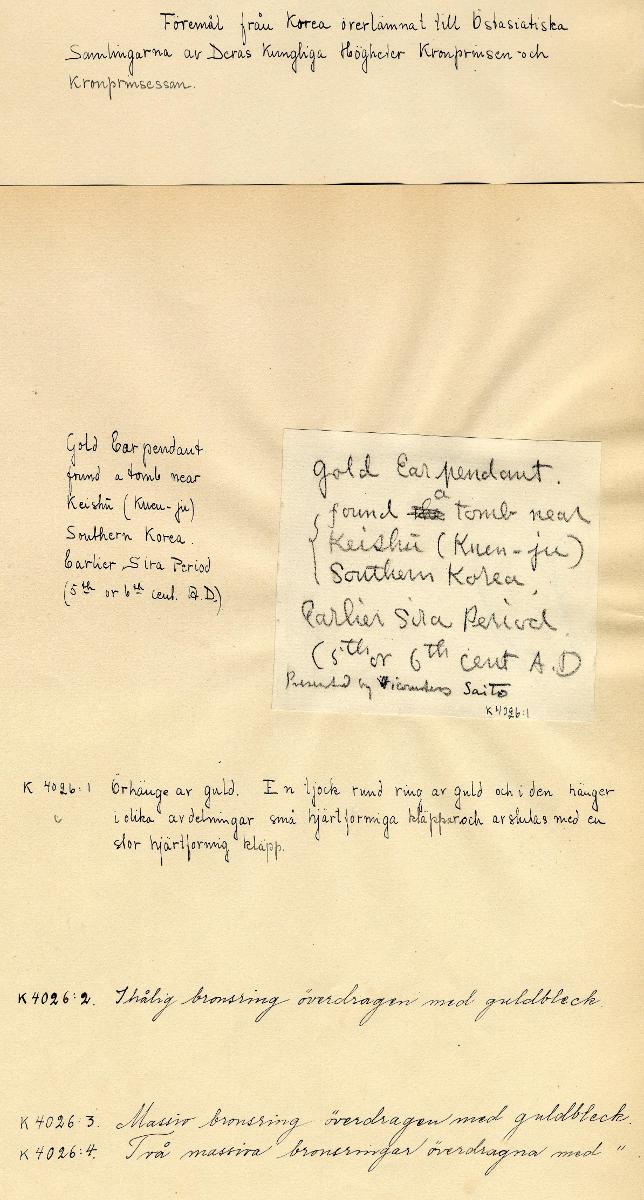 Föremål från Korea överlämnat till Östasiatiska
Samlingarna av Deras Kungliga Högheter Kronprinsen och
Kronprinsessan.
Gold Ear pendant
found a tomb near
Keishū (Kuen-ju)
Southern Korea.
Earlier Sira Period
(5th or 6th cent. A.D.)
Gold Ear pendant.
found a tomb near
Keishū (Kuen-ju)
Southern Korea,
Earlier Sira Period.
(5th or 6th cent A.D
Presented by Saitō
K 4026:1
K 4026:1 Örhänge av guld. En tjock rund ring av guld och i den hänger
i olika avdelningar små hjärtformiga kläppar och avslutas med en
stor hjärtformig kläpp.
K 4026:2. Ihålig bronsring överdragen med guldbleck.
K 4026:3. Massiv bronsring överdragen med guldbleck.
K 4026:4. Två massiva bronsringar överdragna med "